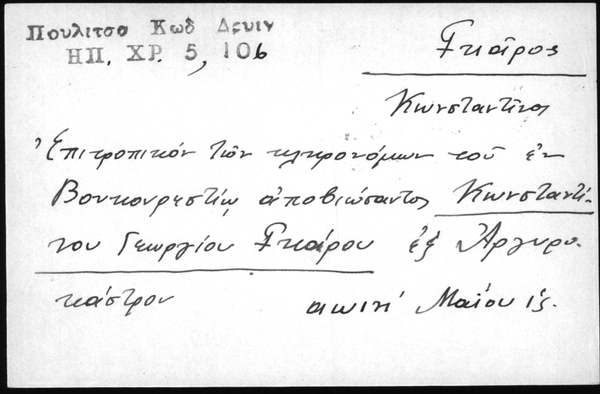 Πουλιτσα Κωδ Δρυιν
ΗΠ. ΧΡ. 5, 106
Γκαῖρος
Κωνσταντῖνος
Ἐπιτροπικόν τῶν κληρονόμων τοῦ ἐν
Βουκουρεστίῳ ἀποβιώσαντος Κωνσταντί-
νου Γεωργίου Γκαίρου ἐξ Ἀργυρο-
κάστρου
αωιη' Μαΐου ις.